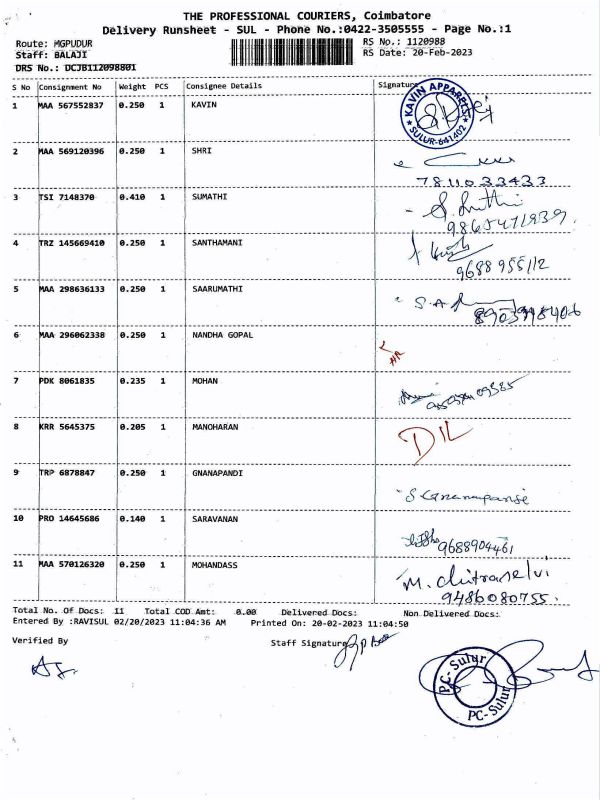 THE PROFESSIONAL COURIERS, Coimbatore
Delivery Runsheet - SUL - Phone No.:0422-3505555 - Page No.:1
Route: MGPUDUR RS No.: 1120988
Staff: BALAJI RS Date: 20-Feb-2023
DRS No.: DCJB112098801
S No Consignment No Weight PCS Consignee Details Signature
1 MAA 567552837 0.250 1 KAVIN
KAVIN APPARELS SULUR-641402
2 MAA 569120396 0.250 1 SHRI
7811033433
3 TSI 7148370 0.410 1 SUMATHI
4 TRZ 145669410 0.250 1 SANTHAMANI
9688955112
5 MAA 298636133 0.250 1 SAARUMATHI
6 MAA 296062338 0.250 1 NANDHA GOPAL
7 PDK 8061835 0.235 1 MOHAN
8 KRR 5645375 0.205 1 MANOHARAN
DIL
9 TRP 6878847 0.250 1 GNANAPANDI
10 PRO 14645686 0.140 1 SARAVANAN
9688904461
11 MAA 570126320 0.250 1 MOHANDASS
M. Chitraselvi
9486080755.
Total No. Of Docs: 11 Total COD Amt: 0.00 Delivered Docs: Non Delivered Docs:
Entered By :RAVISUL 02/20/2023 11:04:36 AM Printed On: 20-02-2023 11:04:50
Verified By Staff Signature
PC-Sulur
PC-Sulur